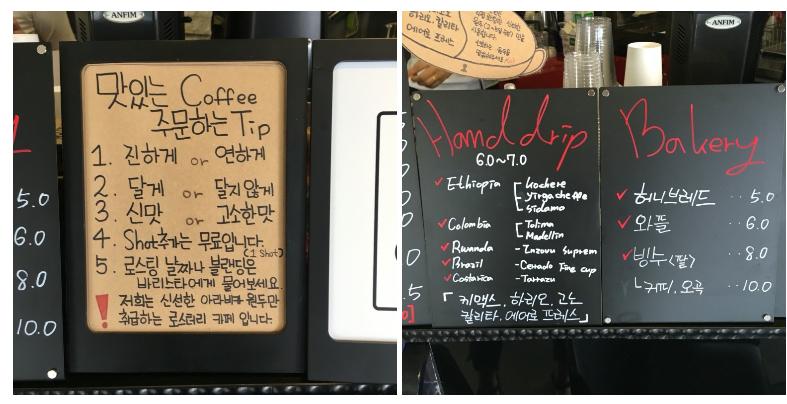 ANFIM
맛있는 Coffee
주문하는 Tip
1. 진하게 or 연하게
2. 달게 or 달지 않게
3. 신맛 or 고소한맛
4. Shot추가는 무료입니다.
(1 Shot)
5. 로스팅 날짜나 블랜딩은
바리스타에게 물어보세요.
! 저희는 신선한 아라비카 원두만
취급하는 로스터리 카페 입니다.
5.0
6.0
8.0
10.0
ANFIM
하리오. 칼리타
에어로 프레스
Hand drip
6.0~7.0
Ethiopia Kochere
Yirgacheffe
Sidamo
Colombia Tolima
Medellin
Rwanda - Inzovu Suprem
Brazil - Cerado Fine cup
Costarica - Tarrazu
「케맥스. 하리오. 고노
칼리타. 에어로 프레스」
Bakery
허니브레드 ·· 5.0
와플 ·· 6.0
빙수<팥> ·· 8.0
ㄴ커피. 오곡 ·· 10.0